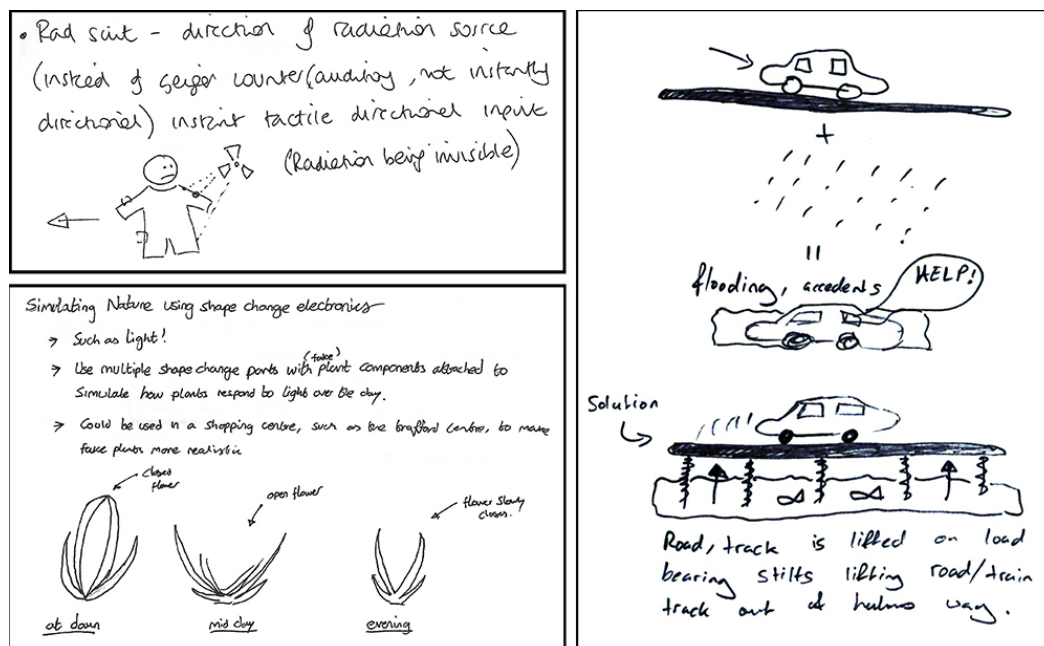 • Rad suit - direction of radiation source
(instead of geiger counter (auditory, not instantly
directional) instant tactile directional input
(Radiation being invisible)
Simulating Nature using shape change electronics
→ Such as light!
(fake)
→ Use multiple shape change parts with plant components attached to
simulate how plants respond to light over the day.
→ Could be used in a shopping centre, such as the trafford centre, to make
fake plants more realistic
closed
flower
open flower
flower slowly
closes.
at dawn
mid day
evening
+
=
flooding, accedents
HELP!
Solution
Road, track is lifted on load
bearing stilts lifting road/train
track out of way.